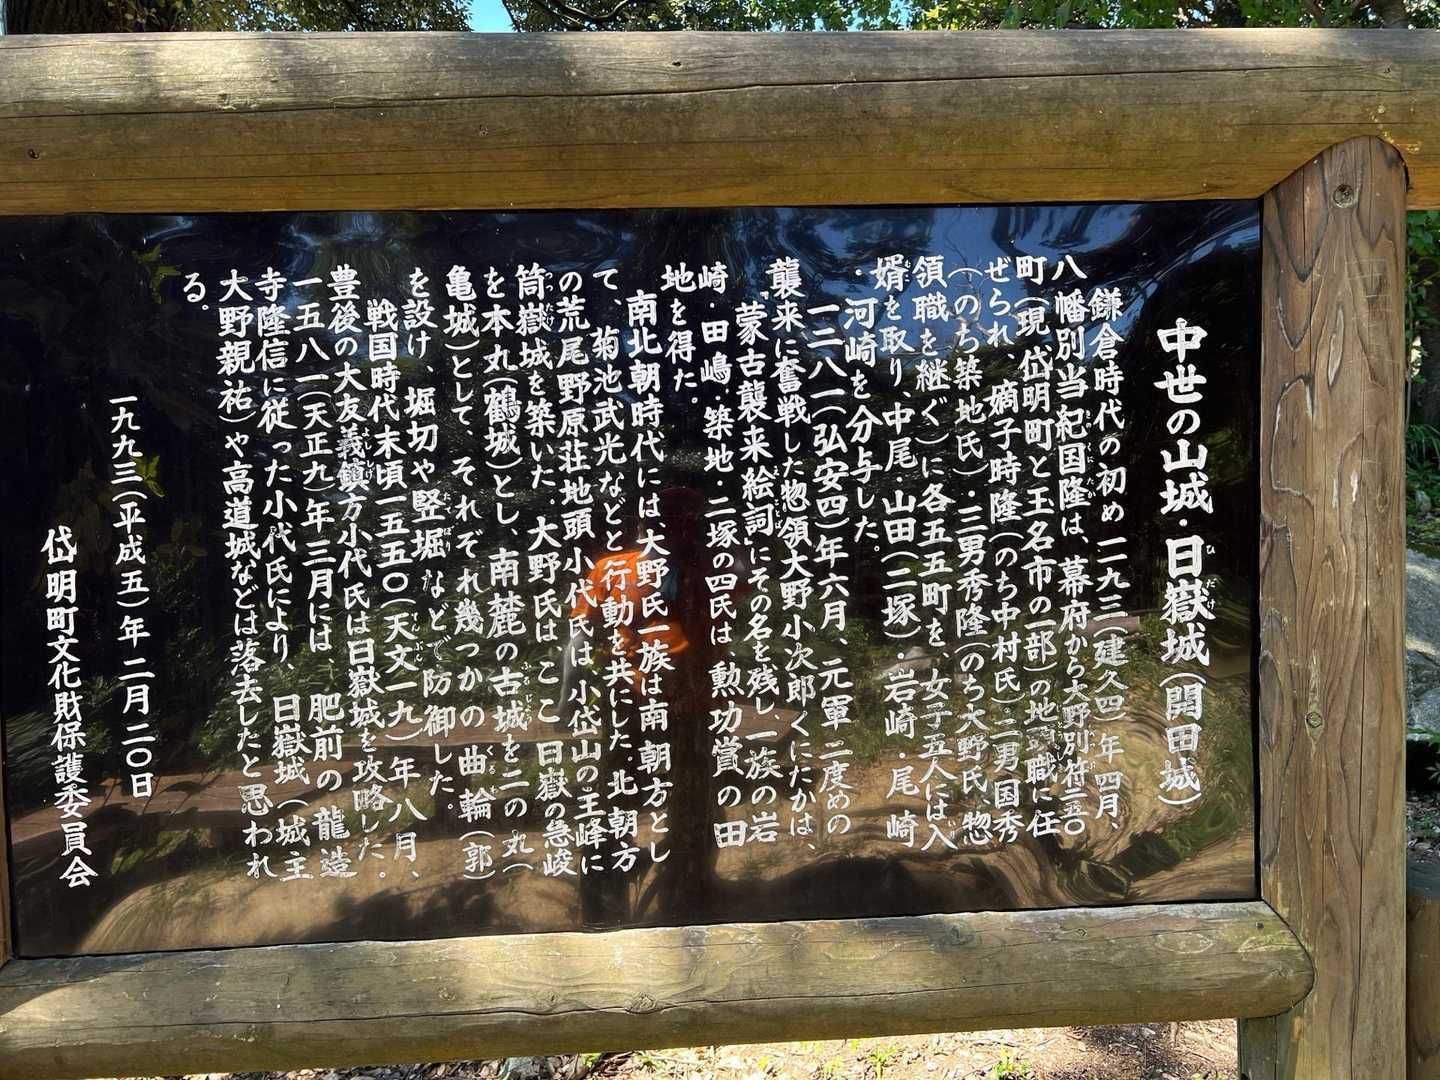 中世の山城・日嶽城(開田城)
鎌倉時代の初め一一九三(建久四)年四月、
八幡別当紀国隆は、幕府から大野別符二五〇
町(現岱明町と玉名市の一部)の地頭職に任
ぜられ、嫡子時隆(のち中村氏)二男国秀
(のち築地氏)・三男秀隆(のち大野氏、惣
領職を継ぐ)に各五五町を、女子五人には入
婿を取り、中尾・山田(二塚)・岩崎・尾崎
・河崎を分与した。
一二八一(弘安四)年六月、元軍二度めの
襲来に奮戦した惣領大野小次郎くにたかは、
「蒙古襲来絵詞」にその名を残し、一族の岩
崎・田嶋・築地・二塚の四氏は、勲功賞の田
地を得た。
南北朝時代には、大野氏一族は南朝方とし
て、菊池武光などと行動を共にした。北朝方
の荒尾野原荘地頭小代氏は、小岱山の王峰に
筒嶽城を築いた。大野氏は、ここ日嶽の急峻
を本丸(鶴城)とし、南麓の古城を二の丸(
亀城)として、それぞれ幾つかの曲輪(郭)
を設け、堀切や竪堀などで防御した。
戦国時代末頃一五五〇(天文一九)年八月、
豊後の大友義鎮方小代氏は日嶽城を攻略した。
一五八一(天正九)年三月には、肥前の龍造
寺隆信に従った小代氏により、日嶽城(城主
大野親祐)や高道城などは落去したと思われ
る。
一九九三(平成五)年二月二〇日
岱明町文化財保護委員会